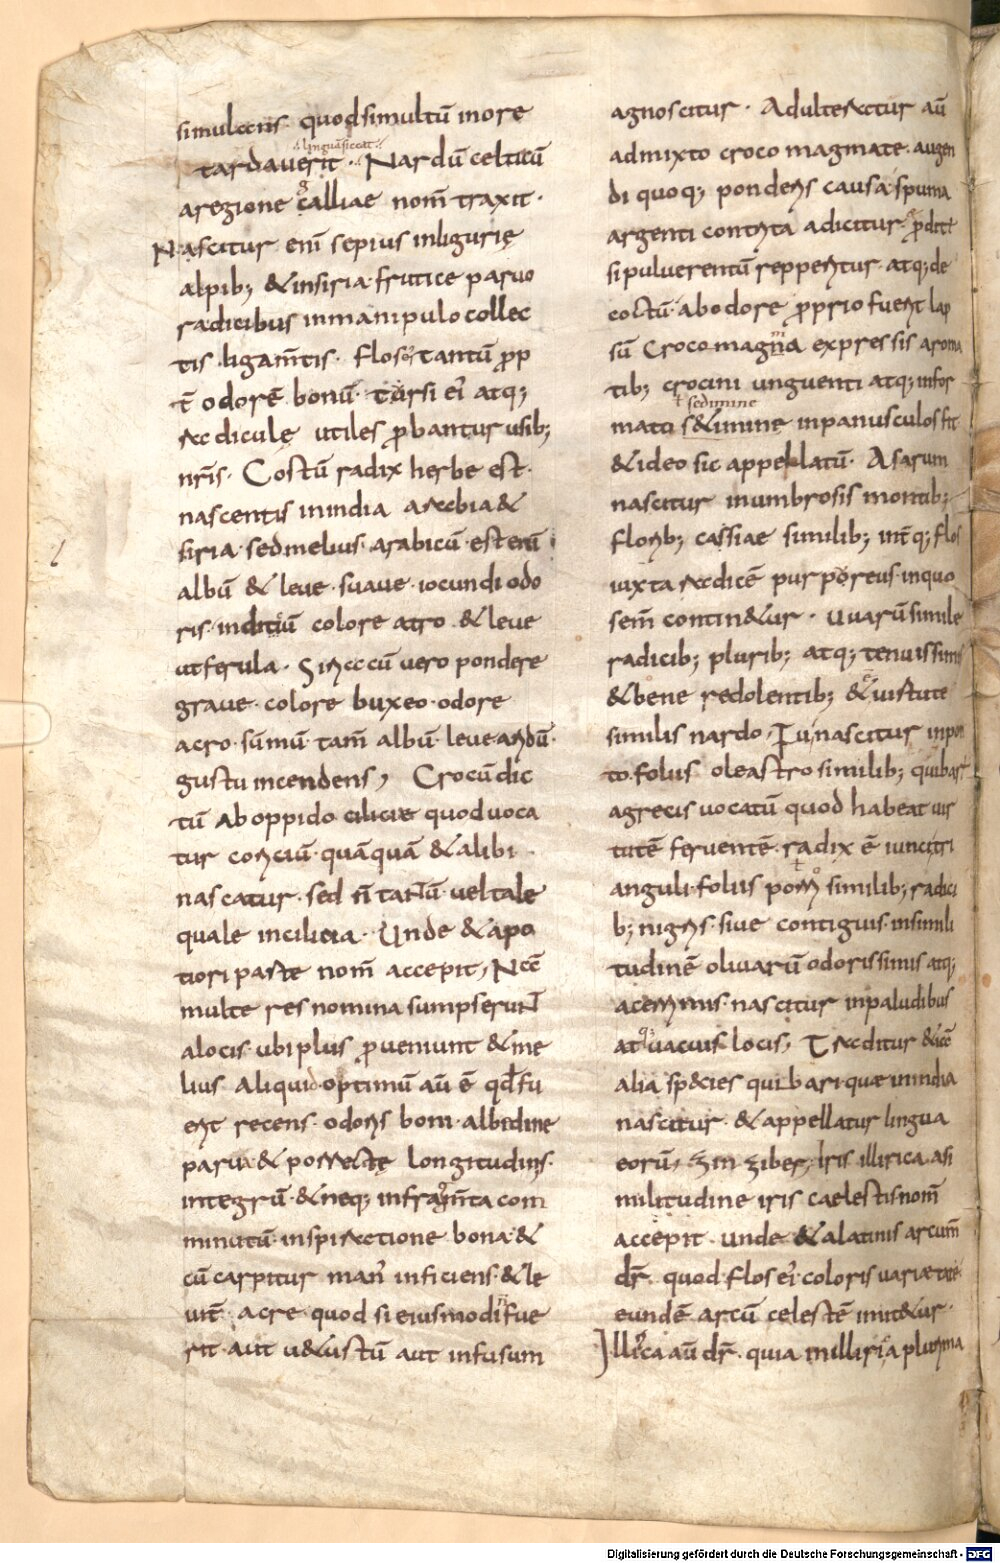 simulans · quod si multū in ore
linguā siccat
tardauerit · Nardū celticū
g
a regione calliae nom̄ traxit ·
Nascitur enī sepius in ligurię
alpib; & in siria · frutice paruo
radicibus in manipulo collec
tis · ligam̄tis · flos tantū ꝓp
t̄ odorē bonū · tirsi eī atq;
radiculę utiles ꝓbantur usib;
nr̄is · Costū radix herbe est ·
nascentis in india arabia &
siria · sed melius · arabicū · est enī
albū & leue · suaue · iocundi odo
ris · indiciū colore atro & leue
ut ferula · Siriacū uero pondere
graue · colore buxeo · odore
acro · sūmū tam̄ albū · leue aridū ·
gustu incendens, Crocū dic
tū ab oppido cilicie quod uoca
tur coriciū · quāquā & alibi ·
nascatur · sed n̄ tantū · uel tale
quale in cilicia · Unde & a po
tiori parte nom̄ accepit, Nā
multe res nomina sumpserunt
a locis · ubi plus ꝓueniunt & me
lius aliquid · optimū aū ē qd̄ fu
erit recens · odoris boni · albidine
parua & porrecte longitudinis ·
integrū · & neq; in fragm̄ta com
minutū · inspiratione bona · &
cū carpitur man̄ inficiens · & le
uit̄ acre · quod si eiusmodi n̄ fue
rit · aut uetustū aut infusum
agnoscitur · Adulteratur aū
admixto croco magmate · augen
di quoq; ponderis causa · spuma
argenti contrita adicitur · ꝓdit̄
si puluerentū repperitur · atq; de
coctū · ab odore ꝓprio fuerit lap
sū Crocomagma expressis aroma
tib; crocini unguenti atq; infor
ł sedimine
mati s&imine in panusculos fit
& ideo sic appellatū · Asarum
nascitur in umbrosis montib;
florib; cassiae similib; int̄q; flos
iuxta radicē purporeus · in quo
sem̄ contin&ur · Uuarū simile
radicib; plurib; atq; tenuissimis
& bene redolentib; & uirtute
similis nardo,
to foliis oleastro similib;
a grecis uocatū quod habeat uir
tutē feruentē · radix ē iunci tri
anguli · foliis porro similib; radici
b; nigris · siue contiguis · in simili
tudinē oliuarū odorissimis atq;
acerrimis · nascitur in paludibus
atq; uacuis locis, Traditur &iā
alia sp&ies quibari · quæ in india
nascitur · & appellatur lingua
eorū, zinziber, Iris illirica · a si
militudine iris caelestis nom̄
accepit · unde & a latinis arcum̄
dr̄ · quod flos eī coloris uarietate
eundē arcū celestē imit&ur ·
Illirica aū dr̄ · quia in illiria plurima
Digitalisierung gefördert durch die Deutsche Forschungsgemeinschaft - DFG